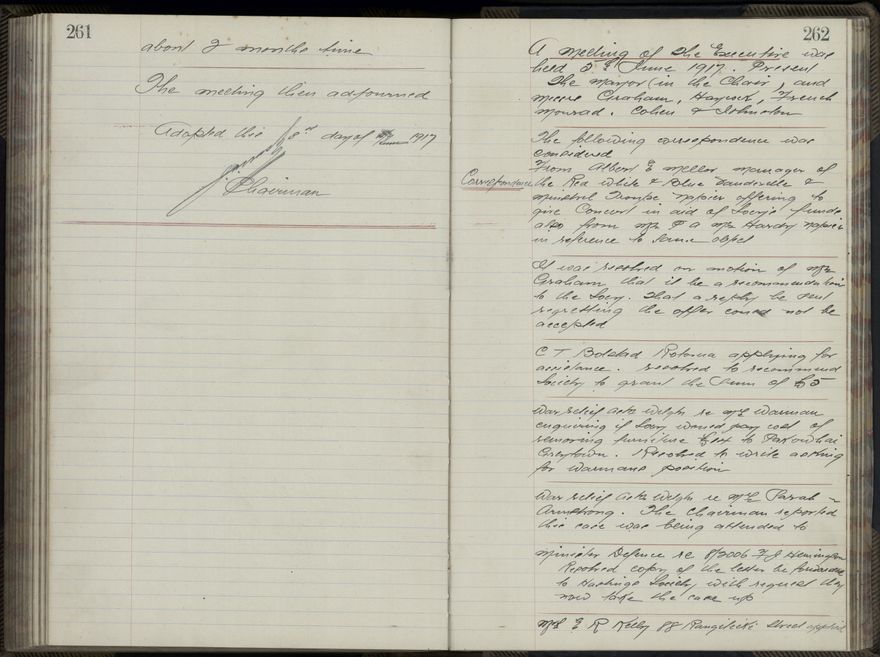 261
about 2 months time
The meeting then adjourned
Adopted this 8th day of June 1917
Chairman
262
A meeting of the Executive was
held 2nd June 1917. Present
The Mayor (in the Chair), and
Messrs Graham, Haycock, French
Monrad, Cohen & Johnston
The following correspondence was
considered
Correspondence
From Albert E Mellor manager of
the Red White & Blue Vaudeville &
Minstrel Troupe Napier offering to
give Concert in aid of Socy's funds
also from Mr Hardy Napier
in reference to same object
It was resolved on motion of Mr
Graham that it be a recommendation
to the Socy. That a reply be sent
regretting the offer could not be
accepted
C T Rotorua applying for
assistance. resolved to recommend
Society to grant the sum of £5
War relief Assn Welgtn re Mrs Warman
enquiring if Socy would pay cost of
removing furniture to
Greytown. Resolved to write asking
for Warmans position
War relief Assn Welgtn re Mrs
Armstrong. The Chairman reported
this case was being attended to
Minister Defence re 8/2006 F J
Resolved copy of the letter be forwarded
to Hastings Society with request they
now take the case up
Mrs E R Kelly 88 Rangitikei Street applied